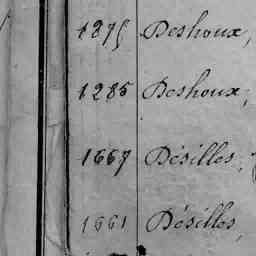 1275 Deshoux,
1285 Deshoux,
1667 Désilles,
1661 Désilles,